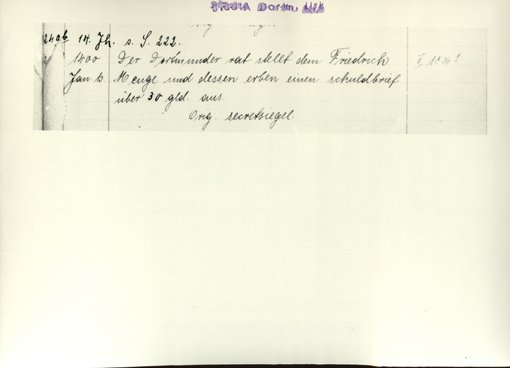 Dortm.
14. Jh. s. S. 222.
1400 Der Dortmunder rat stellt dem Friedrich
Menge und dessen erben einen schuldbrief
über 30 gld. aus.
Orig. secretsiegel.